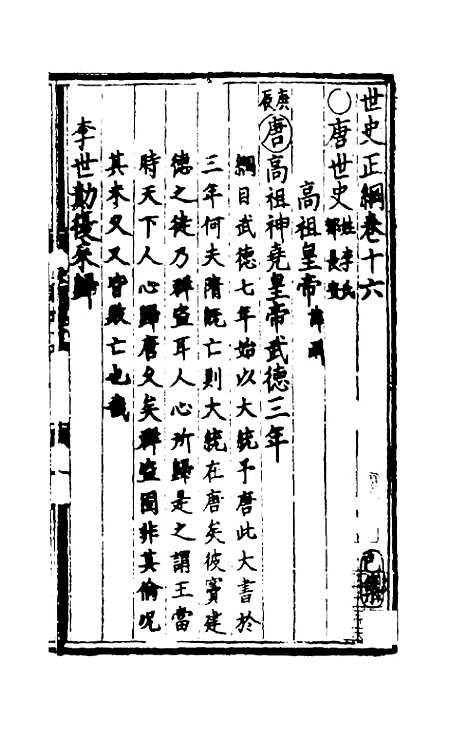 世史正綱卷十六
○唐世史 姓李氏 都長安
高祖皇帝 諱淵
庚辰 唐高祖神堯皇帝武德三年
綱目武德七年始以大統予唐此大書於
三年何夫隋旣亡則大統在唐矣彼竇建
德之徒乃群盗耳人心所歸是之謂王當
時天下人心歸唐久矣群盗固非其倫况
其未久又皆敗亡也哉
李世勣復來歸